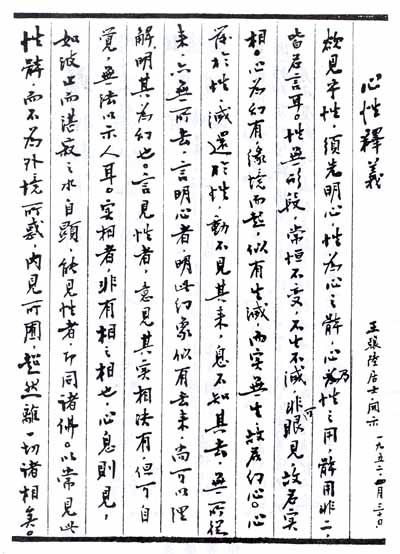 心性釋義
王張陸居士開示 一九五二.四月三十日.
欲見本性，須先明心，性為心之體，心乃性之用，體用非二，
皆君言耳。性無形段，常恒不變，不生不滅，非可眼見，故君實
相。心為幻有，緣境而起，似有生滅，而實無生，故君幻心。心
於性，滅還於性，動不見其來，息不知其去，無所從
來，亦無所去，言明心者，明此幻象似有去來，尚可以理
解，明其為幻也。言見性者，意見其實相法有，但可自
覺，無法以示人耳。實相者，非有相之相也，心息則見，
如波止而湛寂之水自顯，能見性者，即同諸佛。以常見此
性體，而不為外境所惑，內見所囿，超然離一切諸相矣。